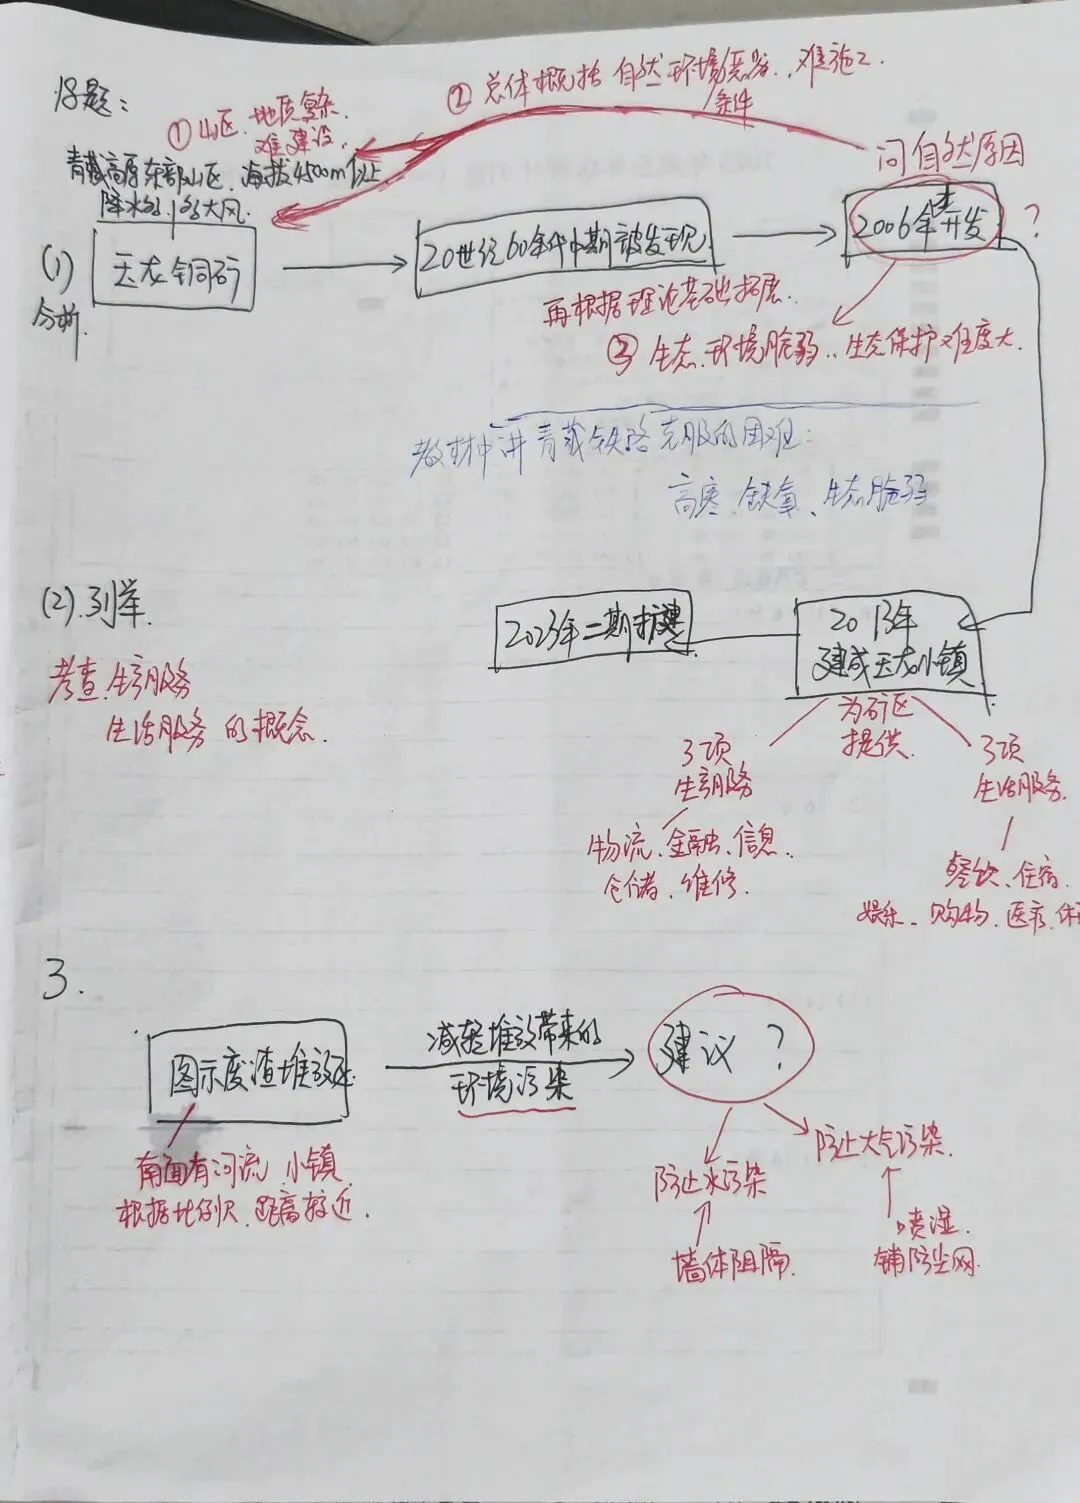 18题：
② 总体概括 自然环境恶劣，难施工
条件
① 山区、地质复杂
难建设，
问自然原因
青藏高原东部山区，海拔4500m以上
降水多，多大风
(1)
分析
玉龙铜矿
20世纪60年代中期被发现
2006年
开发
？
再根据理论基础拓展
③ 生态环境脆弱，生态保护难度大
教材中讲青藏铁路克服的困难：
高寒、缺氧、生态脆弱
(2).列举
考查生产服务
生活服务的概念
2023年二期扩建
2013年
建成玉龙小镇
为矿区
提供
3项
生产服务
3项
生活服务
物流、金融、信息、
仓储、维修
餐饮、住宿
娱乐、购物、医疗、休
3.
图示废渣堆放处
减轻堆放带来的
环境污染
建议？
南面有河流、小镇
根据比例尺，距离较近
防止水污染
防止大气污染
墙体阻隔
喷湿
铺防尘网